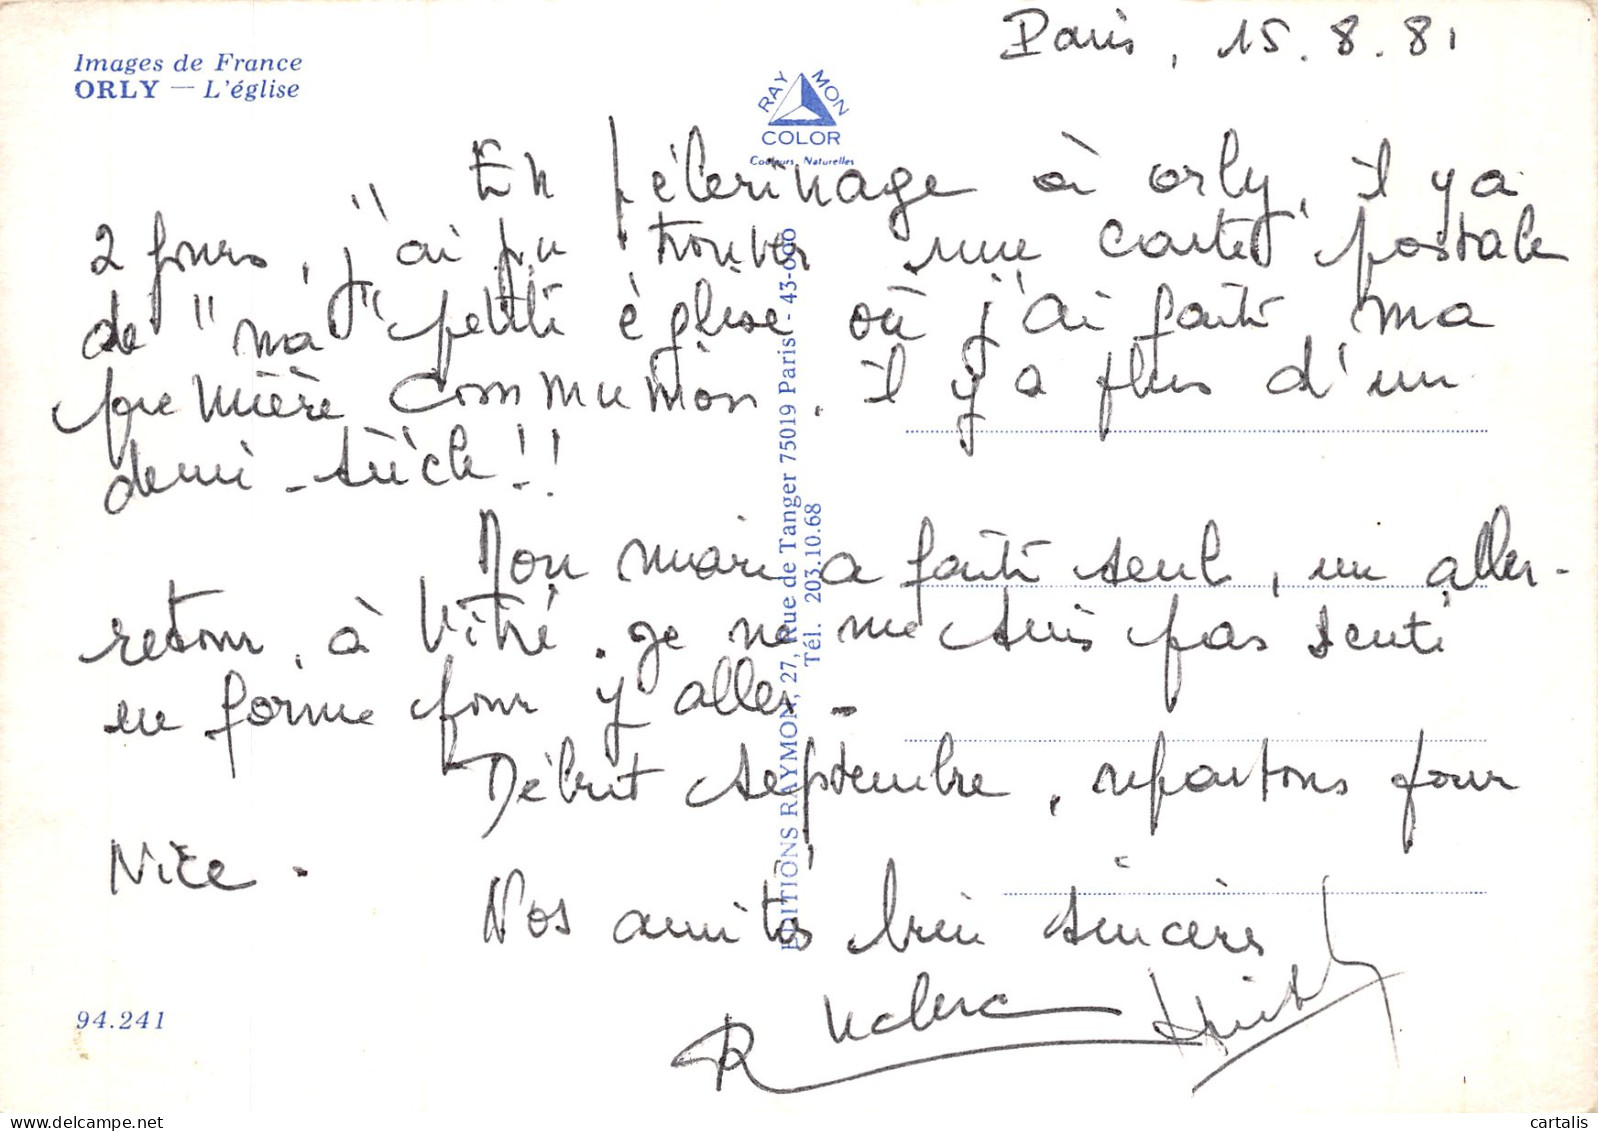 Images de France
ORLY — L'église
Paris, 15.8.81
RAYMON
COLOR
Couleurs Naturelles
En pélerinage à orly, il y a
2 jours, j'ai pu trouver une carte postale
de "ma" petite église où j'ai fait ma
première communion, il y a plus d'un
demi-siècle !!
Mon mari a fait seul, un aller-
retour, à Vitré. je ne me suis pas senti
en forme pour y aller -
Début septembre, repartons pour
Nice.
Nos amitiés bien sincères
EDITIONS RAYMON, 27, Rue de Tanger 75019 Paris - 43-090
Tél. 203.10.68
94.241
cartalis